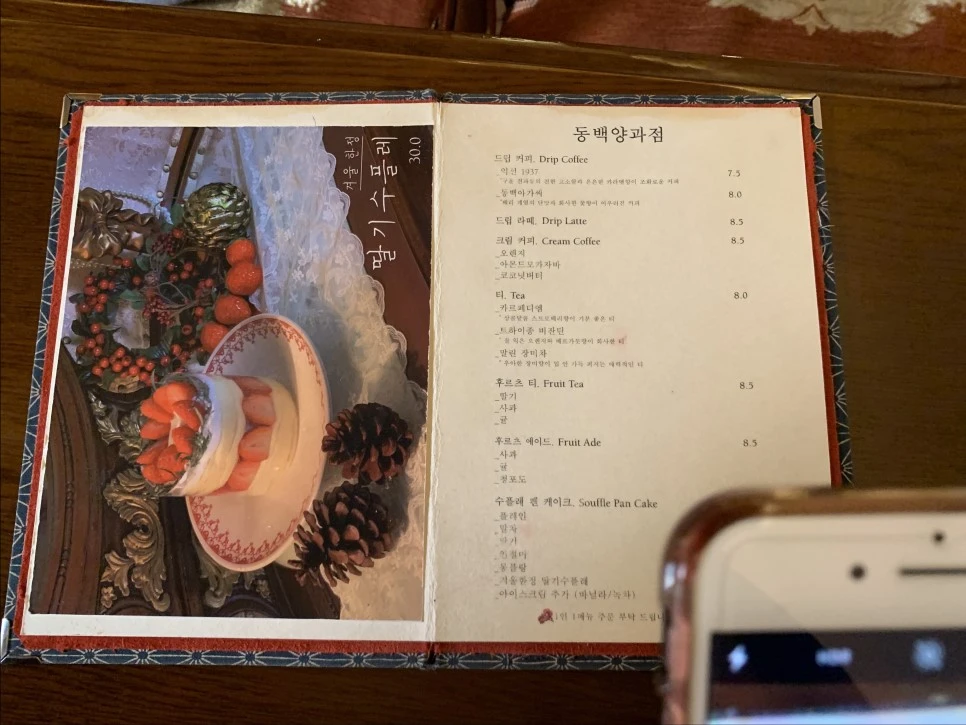 겨울한정
딸기수플레
30.0
동백양과점
드립 커피. Drip Coffee
_익선 1937 7.5
_동백아가씨 8.0
드립 라떼. Drip Latte 8.5
크림 커피. Cream Coffee 8.5
_오렌지
_아몬드모카자바
_코코넛버터
티. Tea 8.0
_카르페디엠
_트하이종 비잔틴
_말린 장미차
후르츠 티. Fruit Tea 8.5
_딸기
_사과
_귤
후르츠 에이드. Fruit Ade 8.5
_사과
_귤
_청포도
수플래 팬 케이크. Souffle Pan Cake
_플레인
_말차
_딸기
_인절미
_몽블랑
_겨울한정 딸기수플레
_아이스크림 추가 (바닐라/녹차)
1인 1메뉴 주문 부탁